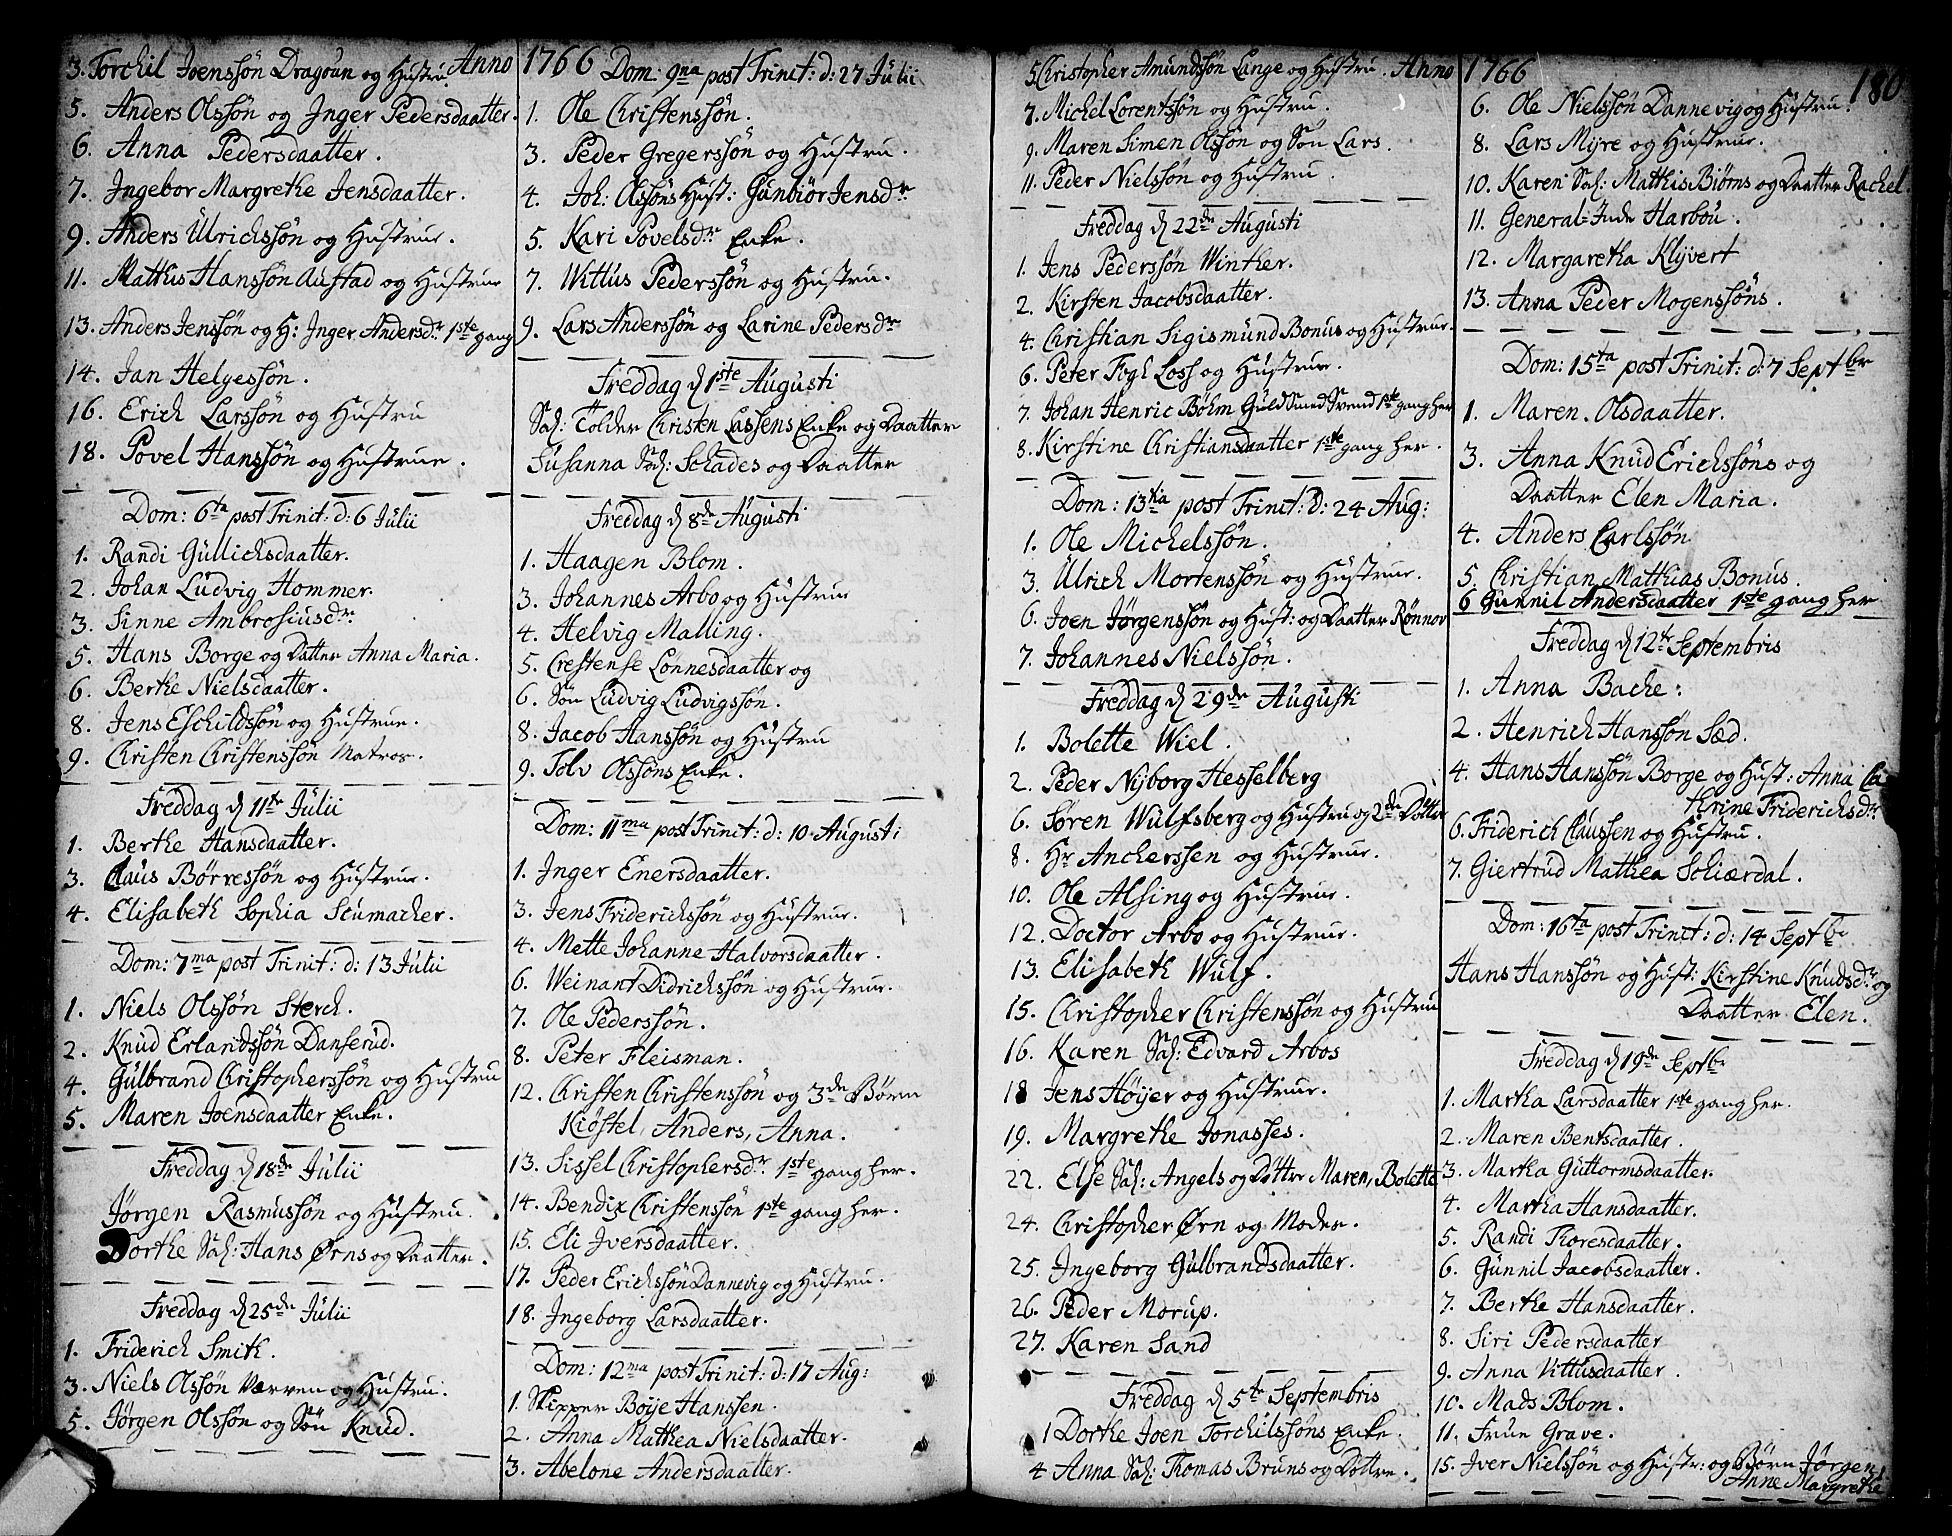 Anno 1766
3. Torchil Joenssön Dragoun og Hustru.
5. Anders Olssön og Inger Pedersdaatter.
6. Anna Pedersdaatter.
7. Ingebor Margrethe Jensdaatter.
9. Anders Ulrichssön og Hustrue.
11. Mathis Hanssön Austad og Hustrue
13. Anders Jenssön og H: Inger Andersdr 1ste gang
14. Jan Helgessön.
16. Erich Larssön og Hustru
18. Povel Hanssön og Hustrue.
Dom: 6ta post Trinit: d: 6 Julii
1. Randi Gullichsdaatter.
2. Johan Ludvig Hommer.
3. Sinne Ambrosiusdr.
5. Hans Borge og Datter Anna Maria.
6. Berthe Nielsdaatter.
8. Jens Eschildssön og Hustrue.
9. Christen Christenssön Matros.
Freddag d 11te Julii
1. Berthe Hansdaatter.
3. Claus Börressön og Hustrue.
4. Elisabeth Sophia Scumacher.
Dom: 7ma post Trinit: d: 13 Julii
1. Niels Olssön Sterch.
2. Knud Erlandssön Danserud.
4. Gulbrand Christopherssön og Hustru
5. Maren Joensdaatter Enke.
Freddag d 18de Julii
Jörgen Rasmussön og Hustru.
Dorthe Sal: Hans Ørns og Daatter.
Freddag d 25de Julii
1. Friderich Smith.
3. Niels Olssön Værven og Hustru.
5. Jörgen Olssön og Sön Knud.
Dom: 9na post Trinit: d: 27 Julii
1. Ole Christenssön.
3. Peder Gregerssön og Hustru.
4. Joh: Olssöns Hust: Gunbiör Jensdr
5. Kari Povelsdr Enke.
7. Wittus Pederssön og Hustru.
9. Lars Anderssön og Larine Pedersdr
Freddag d 1ste Augusti
Sal: Tolder Christen Lassens Enke og Daatter
Susanna Sal: Schades og Daatter
Freddag d 8de Augusti
1. Haagen Blom.
3. Johannes Arbo og Hustrue
4. Helvig Malling.
5. Crestense Lönnesdaatter og
6. Sön Ludvig Ludvigssön.
8. Jacob Hanssön og Hustru
9. Tolv Olssöns Enke.
Dom: 11ma post Trinit: d: 10 Augusti
1. Inger Enersdaatter.
3. Jens Friderichssön og Hustrue.
4. Mette Johanne Halvorsdaatter.
6. Weinant Didrichssön og Hustrue.
7. Ole Pederssön.
8. Peter Fleisman.
12. Christen Christenssön og 3de Börn
Kiöstel, Anders, Anna.
13. Sissel Christophersdr 1ste gang her.
14. Bendix Christenssön 1ste gang her.
15. Eli Iversdaatter.
17. Peder Erichssön Dannevig og Hustru.
18. Ingeborg Larsdaatter.
Dom: 12ma post Trinit: d: 17 Aug:
1. Skipper Böye Hanssen.
2. Anna Mathea Nielsdaatter.
3. Abelone Andersdaatter.
Anno 1766
180
5. Christopher Amundssön Lange og Hustru.
7. Michel Lorentssön og Hustru.
9. Maren Simen Olssön og Sön Lars.
11. Peder Nielssön og Hustru.
Freddag d 22de Augusti
1. Jens Pederssön Winther.
2. Kirsten Jacobsdaatter.
4. Christian Sigismund Bonus og Hustrue.
6. Peter Fogh Loss og Hustrue.
7. Johan Henric Böhm Guld Smed Svend 1ste gang her
8. Kirstine Christiansdaatter 1ste gang her.
Dom: 13tia post Trinit: d: 24 Aug:
1. Ole Michelssön.
3. Ulrich Mortenssön og Hustrue.
6. Joen Jörgenssön og Hust: og Daatter Rönnov
7. Johannes Nielssön.
Freddag d 29de Augusti
1. Bolette Wiel.
2. Peder Nyborg Hesselberg
6. Sören Wulfsberg og Hustru og 2de Dötter
8. Hr Ancherssen og Hustrue.
10. Ole Alsing og Hustrue.
12. Doctor Arbo og Hustrue.
13. Elisabeth Wulf.
15. Christopher Christenssön og Hustru
16. Karen Sal: Edvard Arbos
18 Jens Höyer og Hustrue.
19. Margrethe Jonasses.
22. Else Sal: Angels og Döttre Maren, Bolette
24. Christopher Ørn og Moder.
25. Ingeborg Gulbrandsdaatter.
26. Peder Morup.
27. Karen Sand
Freddag d 5te Septembris
1 Dorthe Joen Torchilssöns Enke.
4 Anna Sal: Thomas Bruns og Döttre.
6. Ole Nielssön Dannevig og Hustru.
8. Lars Myre og Hustrue.
10. Karen Sal: Mathis Biörns og Daatter Rachel.
11. General-Inde Harbou.
12. Margaretha Klyvert
13. Anna Peder Mogenssöns.
Dom: 15ta post Trinit: d: 7 Septbr
1. Maren Olsdaatter.
3. Anna Knud Erichssöns og
Daatter Elen Maria.
4. Anders Carlssön
5. Christian Mathias Bonus.
6 Gunnil Andersdaatter 1ste gang her
Freddag d 12te Septembris
1. Anna Bache:
2. Henrich Hanssön Sæd.
4. Hans Hanssön Borge og Hust: Anna Ca
thrine Friderichsdr
6. Friderich Claussen og Hustru.
7. Giertrud Mathea Schiærdal.
Dom: 16ta post Trinit: d: 14 Septbr
Hans Hanssön og Hust: Kirstine Knudsdr og
Daatter Elen.
Freddag d 19de Septbr
1. Martha Larsdaatter 1ste gang her.
2. Maren Bentsdaatter.
3. Martha Guttormsdaatter.
4. Martha Hansdaatter.
5. Randi Thoresdaatter.
6. Gunnil Jacobsdaatter.
7. Berthe Hansdaatter.
8. Siri Pedersdaatter
9. Anna Vittusdaatter.
10. Mads Blom.
11. Frue Grave.
15. Iver Nielssön og Hustr: og Börn Jörgen,
Anne Margrethe